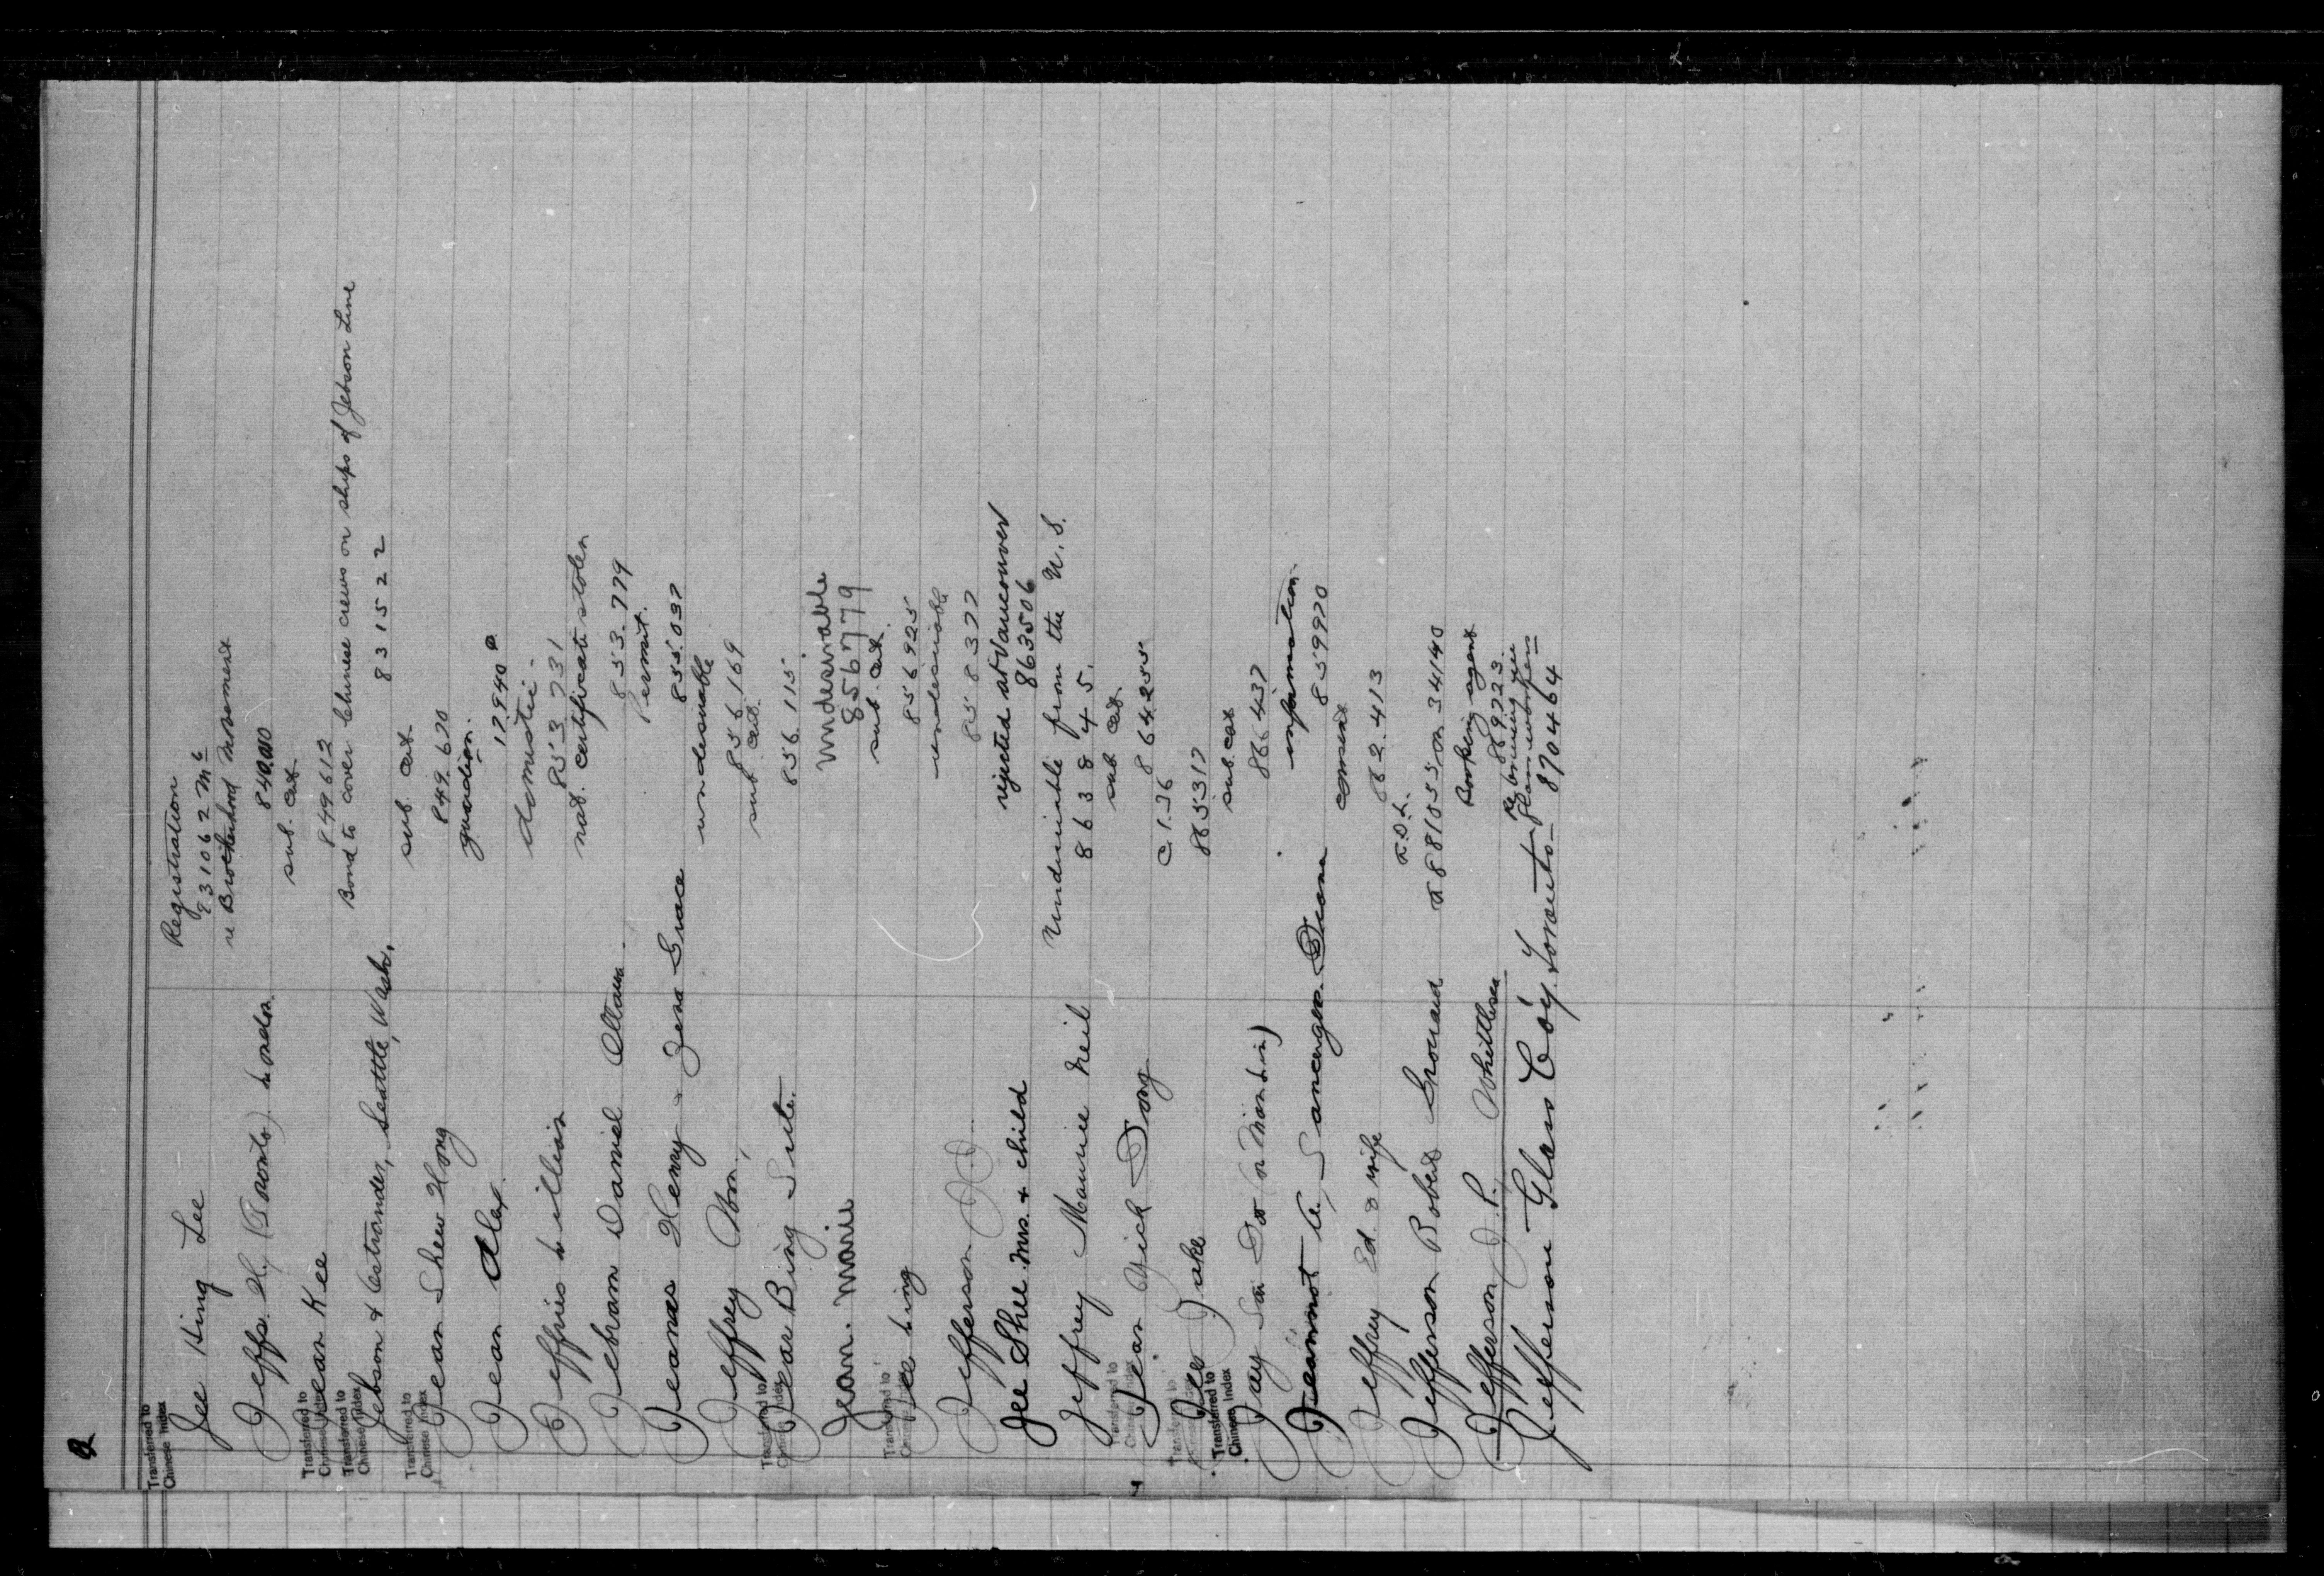 Transferred to
Chinese Index
Jee Hing Lee Registration
831062 Mc
Jeffs. H, (Toronto) London re Brotherhood Movement
840.010
Transferred to
Chinese Index
Jean Kee sub. cat
849612
Transferred to
Chinese Index
Jebson & Ostrander, Seattle, Wash. Bond to cover Chinese crews on ships of Jebson Line
831522
Transferred to
Chinese Index
Jean Shew Hong sub. cat
849.670
Jean Alex. guardian.
12940
Jeffries Lillian domestic -
853731
Jebram Daniel Ottawa nat. certificate stolen
853.779
Jeanes Henry - Zena Grace Permit.
855.037
Jeffrey undesirable
856.169
Transferred to
Chinese Index
Jear Bing Suite. sub. cat.
856.115
Jean. Marie Undesirable
856779
Transferred to
Chinese Index
Jee Ling sub. cat.
856925
Jefferson undesirable
858377
Jee Shee Mrs. & child rejected at Vancouver
863506
Jeffrey Maurice Neil Undesirable from the U.S.
863845.
Transferred to
Chinese Index
Jean Yick Dong sub. cat
864255
Transferred to
Chinese Index
Jee Jake C.I.36
865317
Transferred to
Chinese Index
Jay Sai Do (or Man Lin) sub. cat
866437
Jeannot information.
859970
Jeffrey Ed. & wife consent
862.413
Jefferson Robert Giround F.D.L.
F881055 or 34140
Jefferson J. P. Whittlesea Booking agent
869223.
Jefferson Glass Co'y. Toronto - re bringing in
glass workers
870464